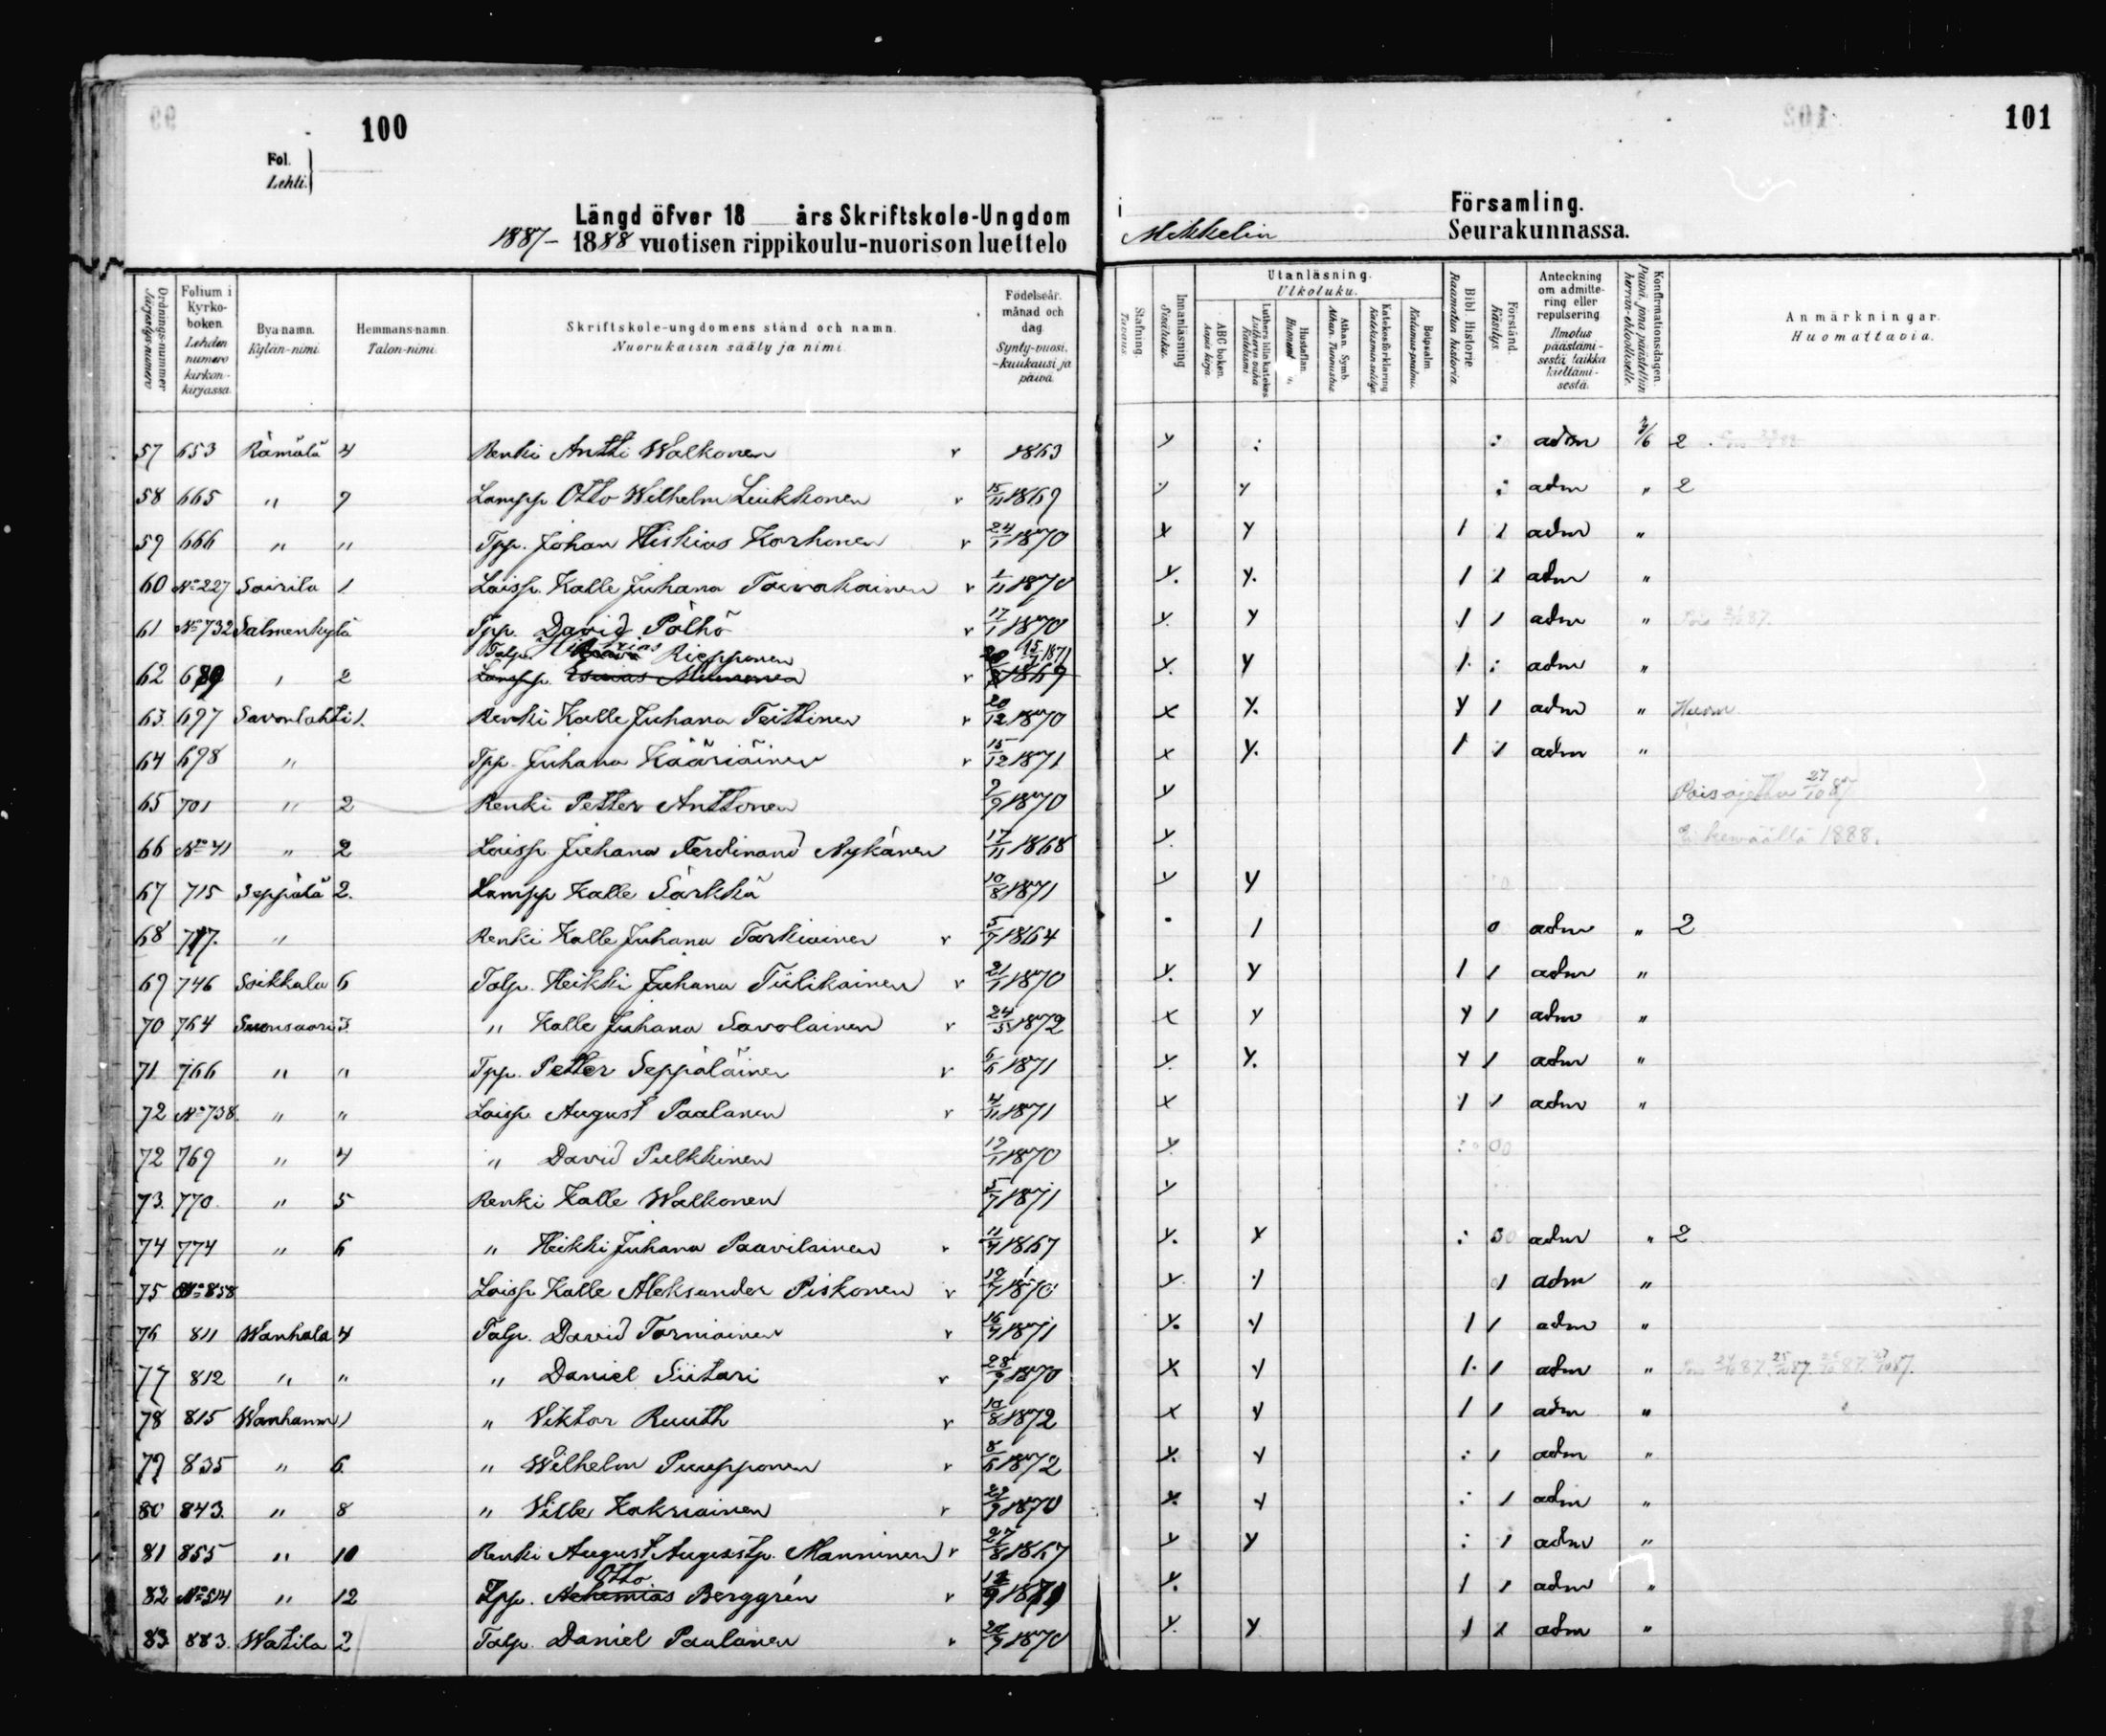 100
Fol.
Lehti.
Längd öfver 18 års Skriftskole-Ungdom
1887- 1888 vuotisen rippikoulu-nuorison luettelo
Ordnings-nummer Järjestys-numero
Folium i Kyrko-boken. Lehden numero kirkon-kirjassa
Bya namn. Kylän-nimi
Hemmans-namn. Talon-nimi.
Skriftskole-ungdomens stånd och namn. Nuorukaisen sääty ja nimi
Födelseår. månad och dag. Synty-vuosi. -kuukausi ja päivä.
57 653 Rämälä 4 Renki Antti Walkonen v 1863
58 665 " 7 Lampp Otto Wilhelm Liukkonen v 15/11 1869
59 666 " " Tpp. Johan Hiskias Korhonen v 24/1 1870
60 No 227 Sairila 1 Loisp. Kalle Juhana Toivakainen v 1/11 1870
61 No 732 Salmenkylä Tpp. David Pöllö v 17/1 1870
Talp. Riepponen 15/7 1871
62 689 " 2 Lampp. v 1869
63. 697 Savonlahti 1. Renki Kalle Juhana Teittinen v 20/12 1870
64 698 " Tpp. Juhana Kääriäinen v 15/12 1871
65 701 " 2 Renki Petter Anttonen 9/9 1870
66 No 41 " 2 Loisp. Juhana Ferdinand Nykänen 17/11 1868
67 715 Seppälä 2. Lampp Kalle Särkkä 10/8 1871
68 717. " Renki Kalle Juhana Tarkiainen v 5/7 1864
69 746 Soikkala 6 Talp. Heikki Juhana Tiilikainen v 21/1 1870
70 764 Suonsaari 3. " Kalle Juhana Savolainen v 24/5 1872
71 766 " " Tpp. Petter Seppäläinen v 6/6 1871
72 No 738. " " Loisp. August Paalanen v 4/11 1871
72 769 " 4 " David Pulkkinen 19/1 1870
73. 770. " 5 Renki Kalle Walkonen 5/7 1871
74 774 " 6 " Heikki Juhana Paavilainen v 11/4 1867
75 No 858 Loisp. Kalle Aleksander Piskonen v 19/7 1870
76 811 Wanhala 4 Talp. David Torniainen v 16/4 1871
77 812 " " " Daniel Siitari v 28/7 1870
78 815 Wanhanm 1 " Viktor Ruuth v 10/8 1872
79 835 " 6. " Wilhelm Puupponen v 8/6 1872
80 843. " 8 " Ville Kakriainen v 22/9 1870
81 855 " 10 Renki August Augustp. Manninen v 27/8 1867
Otto
82 No 514 " 12 Tpp. Nehemias Berggrén v
83 883. Watila 2 Talp. Daniel Paalanen v 1870
101
i Församling.
Mikkelin Seurakunnassa.
Stafning. Tavaus.
Innanläsning Sisäluku.
Utanläsning. Ulkoluku.
ABC boken. Aapis kirja
Luthers lilla katekes Lutherin vähä Katekismi
Hustaflan. Huoneent
Athan. Symb. Athan. Tunnustus
Katekesförklaring Katekismin selitys
Botpsalm. Katumus-psalmi.
Bibl. Historie. Raamatun historia.
Förstånd. Käsitys.
Anteckning om admitte-ring eller repulsering Ilmotus päästämi-sestä taikka kieltämi-sestä.
Konfirmationsdagen. Päivä, jona päästettiin herran-ehtoolliselle.
Anmärkningar. Huomattavia.
y : : adm 2
y y : adm " 2
x y 1 1 adm "
y. y. 1 1 adm "
y. y 1 1 adm "
y. y 1. : adm "
x y. y 1 adm " Huom
x y. 1 1 adm "
y Pois ajettu 27/10 87
y. Ei keväällä 1888.
y y
. 1 0 adm " 2
y. y 1 1 adm "
x y y 1 adm "
y. y. y 1 adm "
x y 1 adm "
y. : 00
y
y. y : adm " 2
y. y 1 adm "
y. y 1 1 adm "
x y 1. 1 adm "
x y 1 1 adm "
y. y : 1 adm "
y. y : 1 adm "
y y : 1 adm "
y. 1 1 adm "
y. y 1 1 adm "